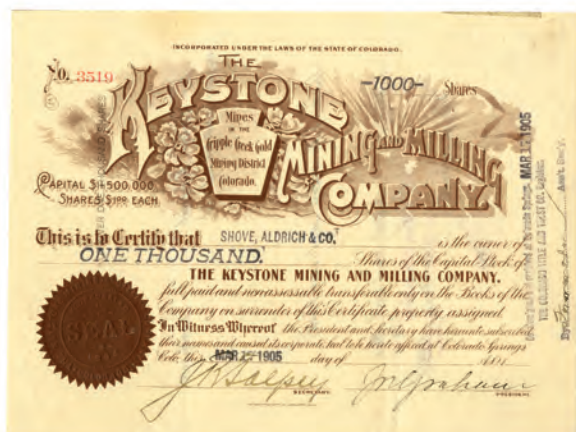 INCORPORATED UNDER THE LAWS OF THE STATE OF COLORADO.
No. 3519
THE
KEYSTONE
MINING AND MILLING
COMPANY.
-1000- Shares
Mines
IN THE
Cripple Creek Gold
Mining District
Colorado.
CAPITAL $1,500,000
SHARES $1.00 EACH
This is to Certify that SHOVE, ALDRICH & CO. is the owner of
ONE THOUSAND. Shares of the Capital Stock of
THE KEYSTONE MINING AND MILLING COMPANY.
full paid and nonassessable transferable only on the Books of the
Company on surrender of this Certificate properly assigned
In Witness Whereof the President and Secretary have hereunto subscribed
their names and caused its corporate seal to be hereto affixed at Colorado Springs
Colo, this MAR 1905 day of
SECRETARY
PRESIDENT
SEAL
MAR 1905
THE COLORADO TITLE AND TRUST CO.